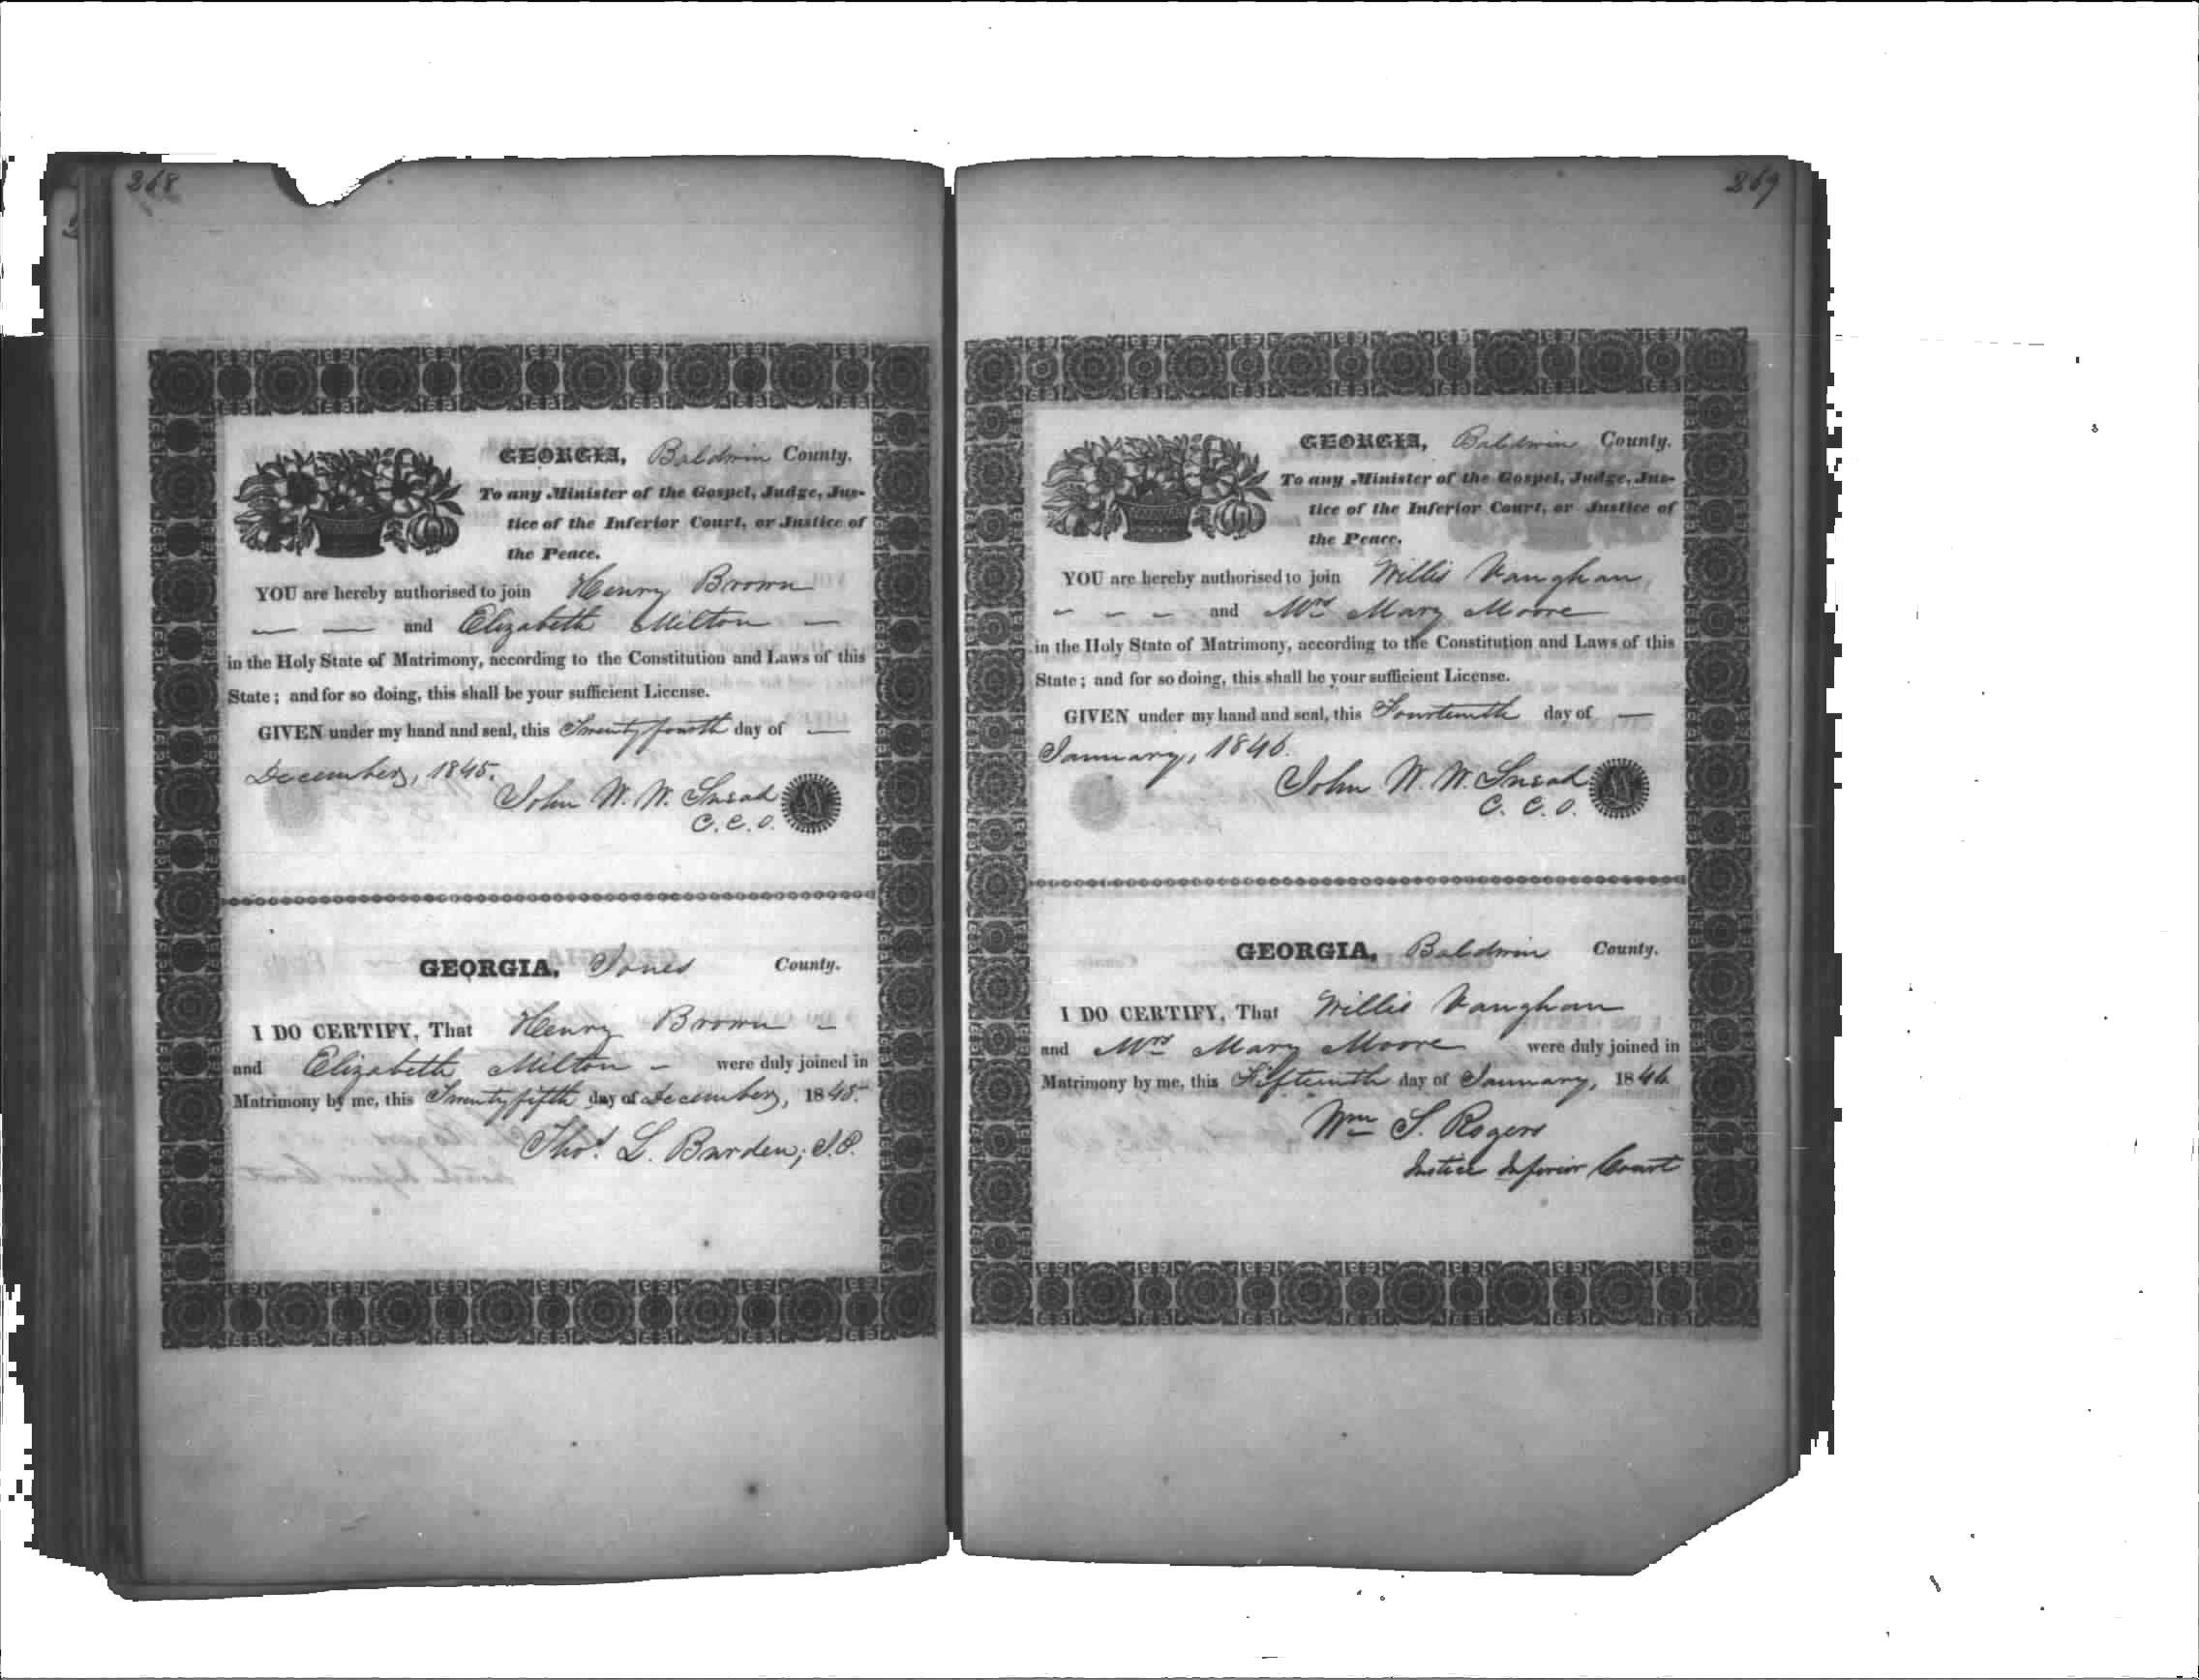 268
GEORGIA, Baldwin County.
To any Minister of the Gospel, Judge, Jus-
tice of the Inferior Court, or Justice of
the Peace.
YOU are hereby authorised to join Henry Brown
— — and Elizabeth Milton —
in the Holy State of Matrimony, according to the Constitution and Laws of this
State; and for so doing, this shall be your sufficient License.
GIVEN under my hand and seal, this Twenty fourth day of —
December, 1845.
John W. W. Snead
C. C. O.
GEORGIA, Jones County.
I DO CERTIFY, That Henry Brown -
and Elizabeth Milton - were duly joined in
Matrimony by me, this Twenty fifth day of December, 1845.
Thos. L. Burden, J.P.
269
GEORGIA, Baldwin County.
To any Minister of the Gospel, Judge, Jus-
tice of the Inferior Court, or Justice of
the Peace.
YOU are hereby authorised to join Willis Vaughan
- - - and Mrs Mary Moore
in the Holy State of Matrimony, according to the Constitution and Laws of this
State; and for so doing, this shall be your sufficient License.
GIVEN under my hand and seal, this Fourteenth day of —
January, 1846.
John W. W. Snead
C. C. O.
GEORGIA, Baldwin County.
I DO CERTIFY, That Willis Vaughan
and Mrs Mary Moore were duly joined in
Matrimony by me, this Fifteenth day of January, 1846
Wm S. Rogers
Justice Inferior Court